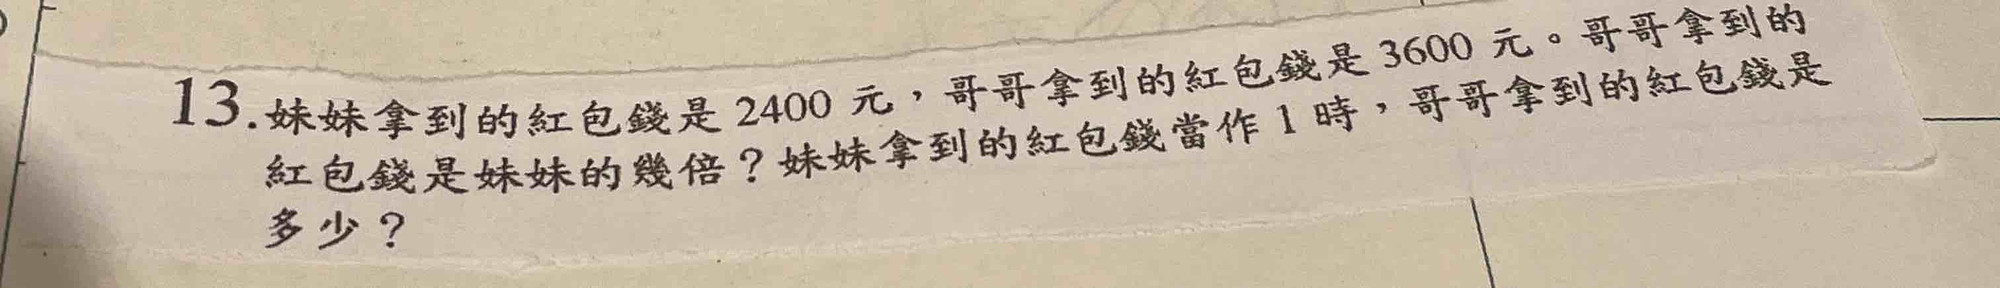 13.妹妹拿到的紅包錢是 2400 元，哥哥拿到的紅包錢是 3600 元。哥哥拿到的
紅包錢是妹妹的幾倍？妹妹拿到的紅包錢當作 1 時，哥哥拿到的紅包錢是
多少？